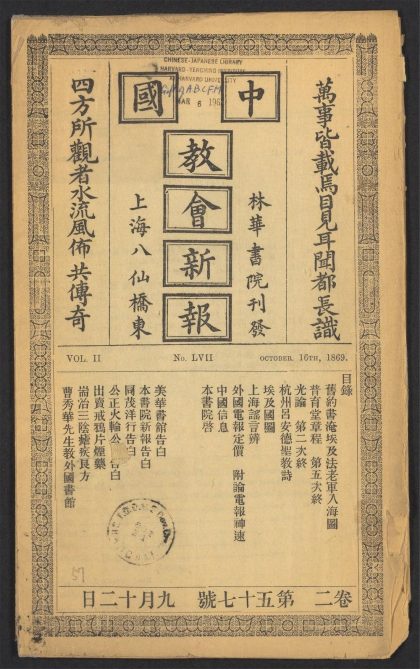 CHINESE-JAPANESE LIBRARY
HARVARD-YENCHING INSTITUTE
AT HARVARD UNIVERSITY
MAR 6
中國
教會新報
萬事皆載焉目見耳聞都長識
林華書院刊發
上海八仙橋東
四方所觀者水流風佈共傳奇
VOL. II No. LVII OCTOBER. 16TH, 1869.
目錄
舊約書淹埃及法老軍入海圖
普育堂章程 第五次終
光論 第二次終
杭州呂安德聖教詩
埃及國圖
上海謠言辨
外國電報定價 附論電報神速
中國信息
本書院啓
美華書館告白
本書院新報告白
同茂洋行告白
公正火輪公 告白
出賣戒鴉片煙藥
耑治三陰瘧疾良方
曹秀華先生教外國書館
卷二 第五十七號 九月十二日
57